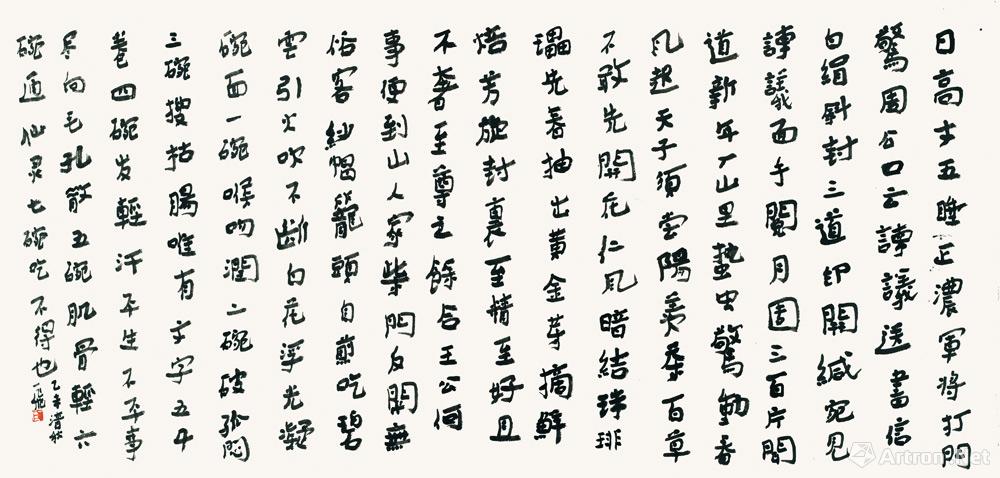 日高丈五睡正濃軍將打門
驚周公口云諫議送書信
白绢斜封三道印開緘宛見
諫議面手閱月團三百片聞
道新年入山里蛰虫驚動春
风起天子須尝陽羡茶百草
不敢先開花仁风暗結珠琲
瓃先春抽出黄金芽摘鮮
焙芳旋封裹至精至好且
不奢至尊之餘合王公何
事便到山人家柴門反關無
俗客紗帽籠頭自煎吃碧
雲引火吹不斷白花浮光凝
碗面一碗喉吻潤二碗破孤悶
三碗搜枯腸唯有文字五千
卷四碗发輕汗平生不平事
尽向毛孔散五碗肌骨輕六
碗通仙灵七碗吃不得也
Artron.Net